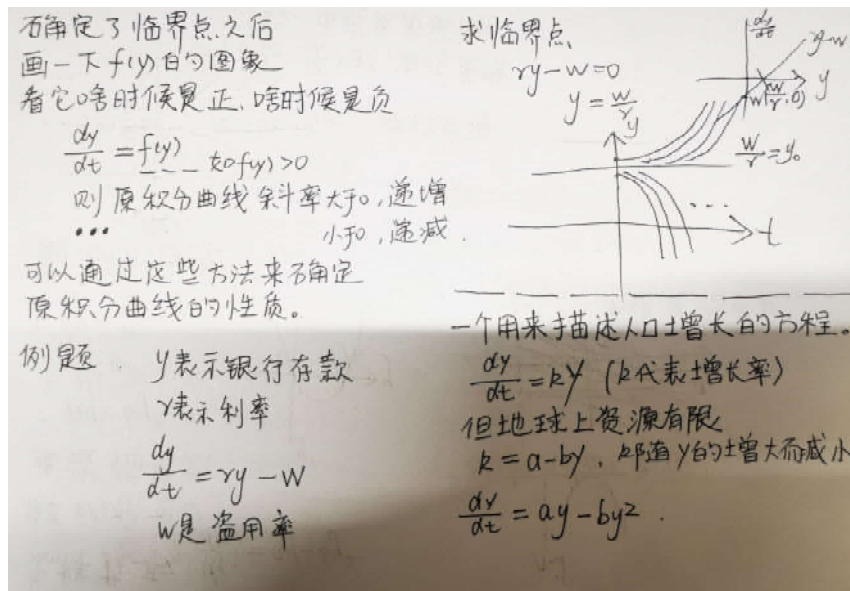 确定了临界点之后
画一下f(y)的图象
看它啥时候是正、啥时候是负
dy/dt = f(y) 如f(y)>0
则原积分曲线斜率大于0,递增
••• 小于0,递减.
可以通过这些方法来确定
原积分曲线的性质。
例题. y表示银行存款
r表示利率
dy/dt = ry - w
w是盗用率
求临界点
ry-w=0
y = w/r
dy/dt
ry-w
y
(w/r, 0)
w
y
w/r = y₀
...
t
一个用来描述人口增长的方程。
dy/dt = ky (k代表增长率)
但地球上资源有限
k = a-by, 即随y的增大而减小
dy/dt = ay - by².